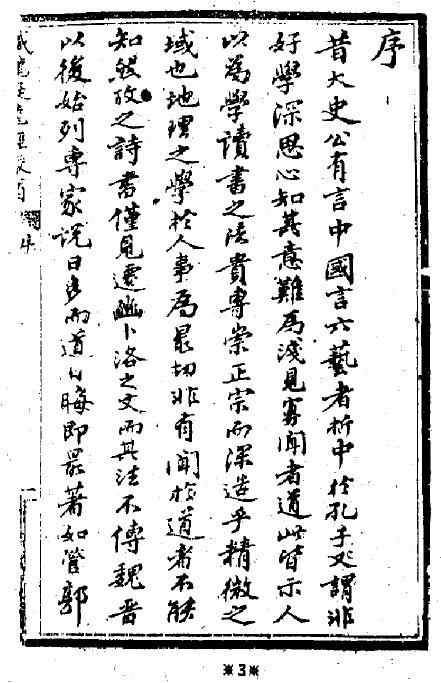 序
昔太史公有言中國言六藝者折中於孔子又謂非
好學深思心知其意難為淺見寡聞者道此皆示人
以為學讀書之法貴專崇正宗而深造乎精微之
域也地理之學於人事為最切非有聞於道者不能
知然攷之詩書僅見遷豳卜洛之文而其法不傳魏晉
以後始列專家說日多而道日晦即最著如管郭
※3※